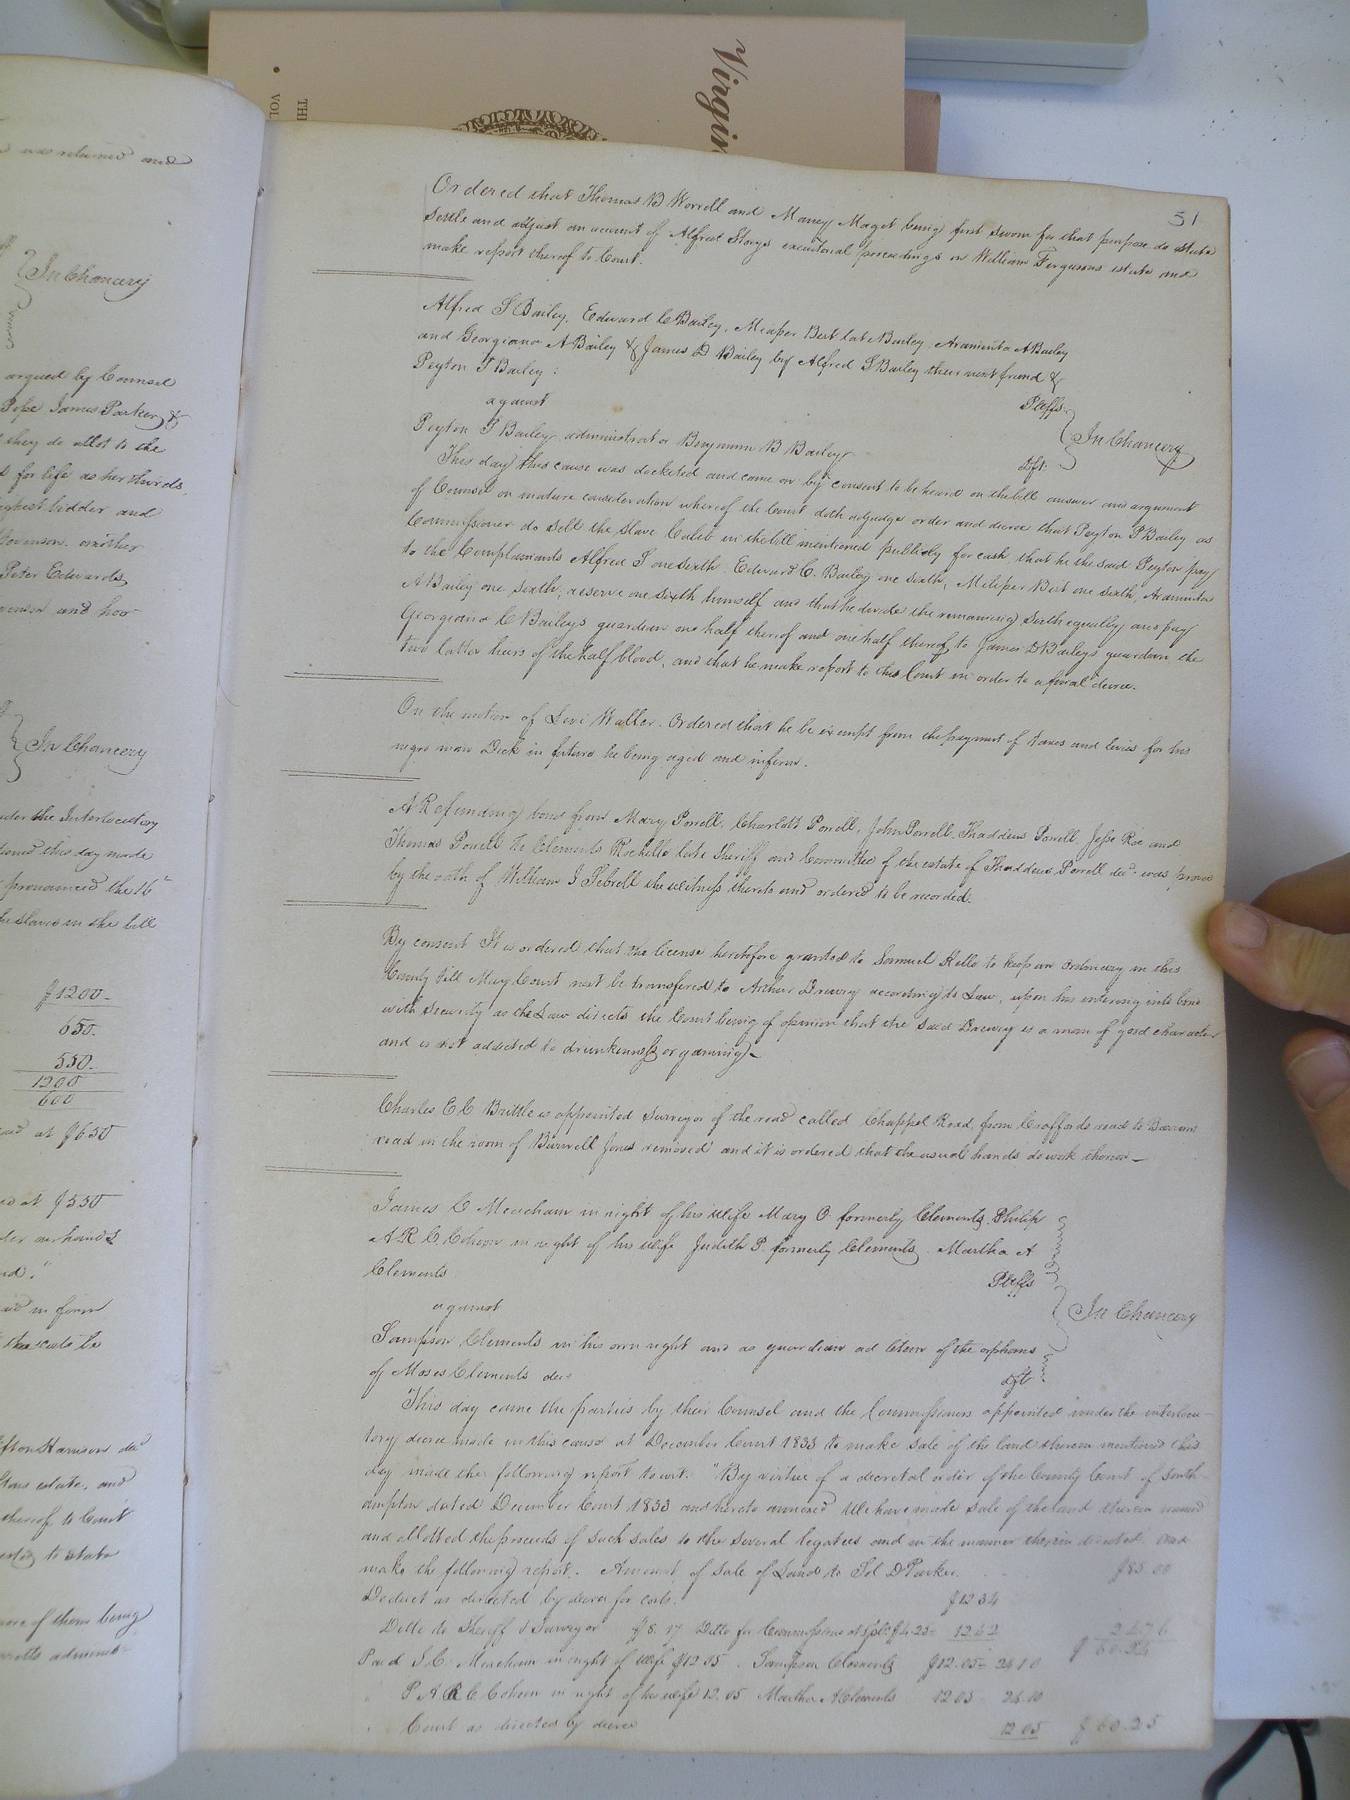 Virgin
THE
VOL
51
Ordered that Thomas B Worrell and Maney Maget being first sworn for that purpose do state
settle and adjust an account of Alfred Storys executorial proceedings on William Fergusons estate and
make report thereof to Court.
Alfred S Bailey, Edward C Bailey, Bert late Bailey, Araminta A Bailey
and Georgiana A Bailey & James D Bailey by Alfred S Bailey their next friend &
Peyton T Bailey :
Pltffs
against
In Chancery
Peyton T Bailey administrator Benjamin B Bailey
dft.
This day this cause was docketed and came on by consent to be heard on the bill answer and argument
of Counsel on mature consideration whereof the Court doth adjudge order and decree that Peyton T Bailey as
Commissioner do sell the slave Caleb in the bill mentioned publicly for cash, that he the said Peyton pay
to the Complainants Alfred S one sixth, Edward C. Bailey one sixth, Bert one sixth, Araminta
A Bailey one sixth, reserve one sixth himself and that he divide the remaining sixth equally and pay
Georgiana C Baileys guardian one half thereof and one half thereof to James D Baileys guardian the
two latter heirs of the half blood, and that he make report to this Court in order to a final decree.
On the motion of Levi Waller. Ordered that he be exempt from the payment of taxes and levies for his
negro man Dick in future he being aged and infirm.
A Refunding bond from Mary Powell, Charlotte Powell, John Powell, Thaddeus Powell, Jesse Roe and
Thomas Powell to Clements Rochelle late Sheriff and Committee of the estate of Thaddeus Powell decd. was proved
by the oath of William I Sebrell the witness thereto and ordered to be recorded.
By consent It is ordered that the license heretofore granted to Samuel Kello to keep an Ordinary in this
County till May Court next be transfered to Arthur Drewry according to Law, upon his entering into bond
with security as the Law directs the Court being of opinion that the said Drewry is a man of good character
and is not addicted to drunkenness or gaming.
Charles E C Brittle is appointed Surveyor of the road called Chappel Road, from Craffords road to Barrows
road in the room of Burwell Jones removed and it is ordered that the usual hands do work thereon
James C Meacham in right of his wife Mary O. formerly Clements, Philip
A R C Cohoon in right of his wife Judith P. formerly Clements, Martha A
Clements
Pltffs
against
In Chancery
Sampson Clements in his own right and as guardian ad litem of the orphans
of Moses Clements dec
dft
This day came the parties by their Counsel and the Commissioners appointed under the interlocu-
tory decree made in this cause at December Court 1833 to make sale of the land therein mentioned this
day made the following report towit. "By virtue of a decretal order of the County Court of South-
ampton dated December Court 1833 and hereto annexed We have made sale of the land therein named
and allotted the proceeds of such sales to the several legatees and in the manner therein directed and
make the following report. Amount of sale of Land to Sol D Parker. $85.00
Deduct as directed by decree for costs. $12.34
Ditto to Sheriff & Surveyor $8.17 Ditto for Commissioners $4.25= 12.42 24.76
$60.24
Paid J.C. Meacham in right of wife $12.05. Sampson Clements $12.05= 24.10
P A R C Cohoon in right of his wife 12.05 Martha A Clements 12.05 24.10
Court as directed by decree 12.05 $60.25
and
In Chancery
argued by Counsel
Pope James Parker &
they do allot to the
for life as her thirds
highest bidder and
another
Peter Edwards
and hoo-
In Chancery
under the Interlocutory
this day made
pronounced the 16
the slaves in the bill
$1200-
650.
550.
1200
600
at $650
at $550
in form
thereof to Court
to state
of them being